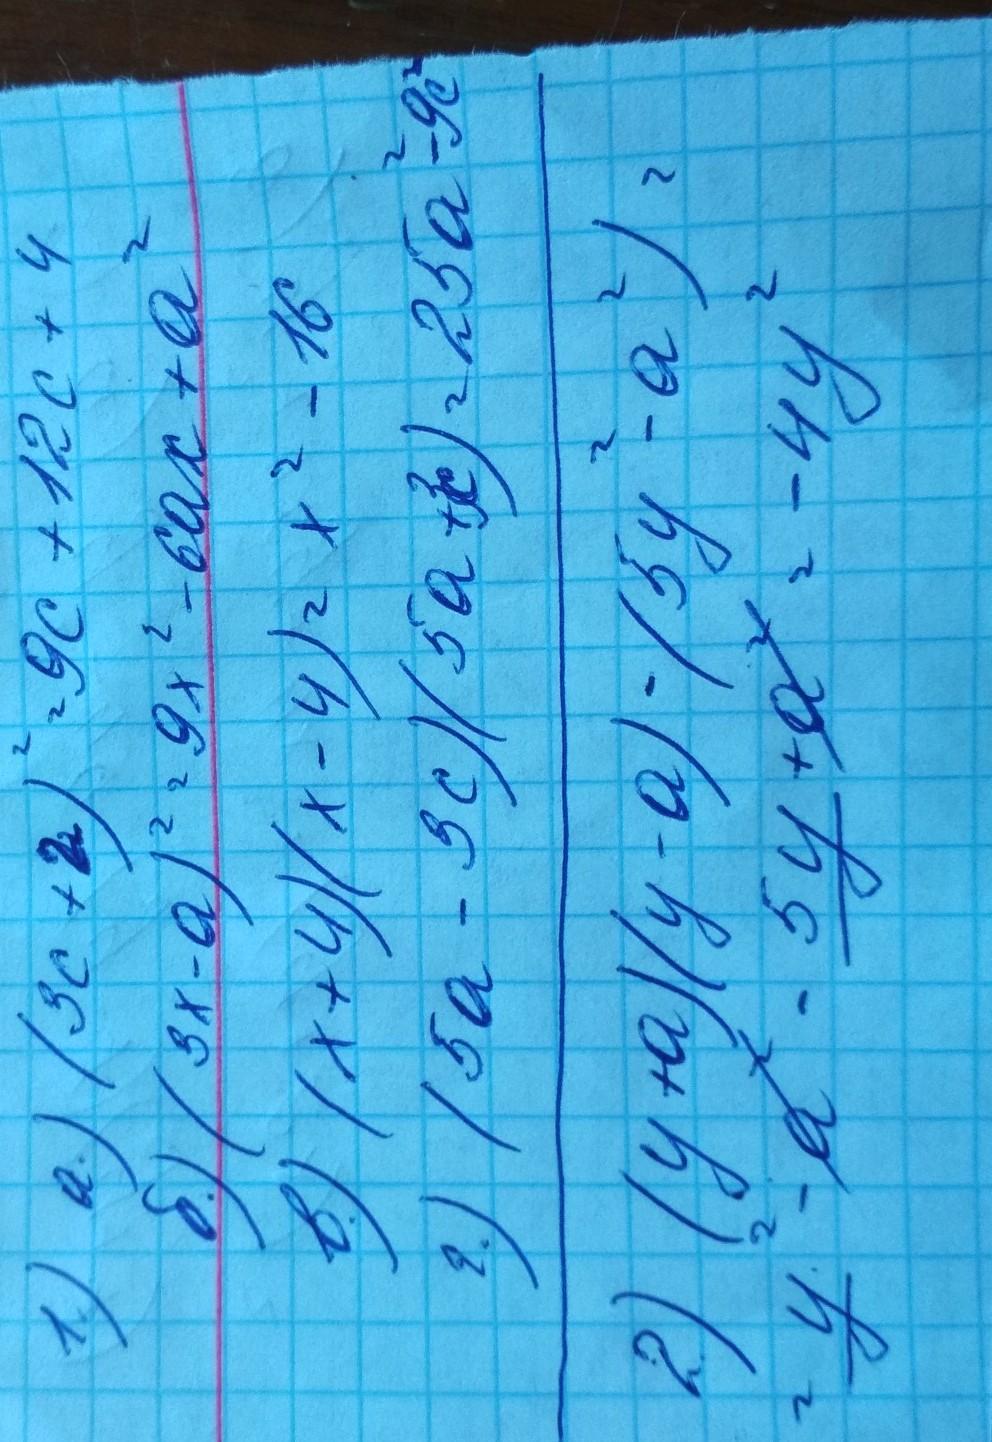 1.) а.) (3c + 2)² = 9c + 12c + 4
б.) (3x - a)² = 9x² - 6ax + a²
в.) (x + 4)(x - 4) = x² - 16
г.) (5a - 3c)(5a + 3c) = 25a² - 9c²
2.) (y + a)(y - a) - (5y² - a²)²
= y² - a² - 5y + a² = - 4y²